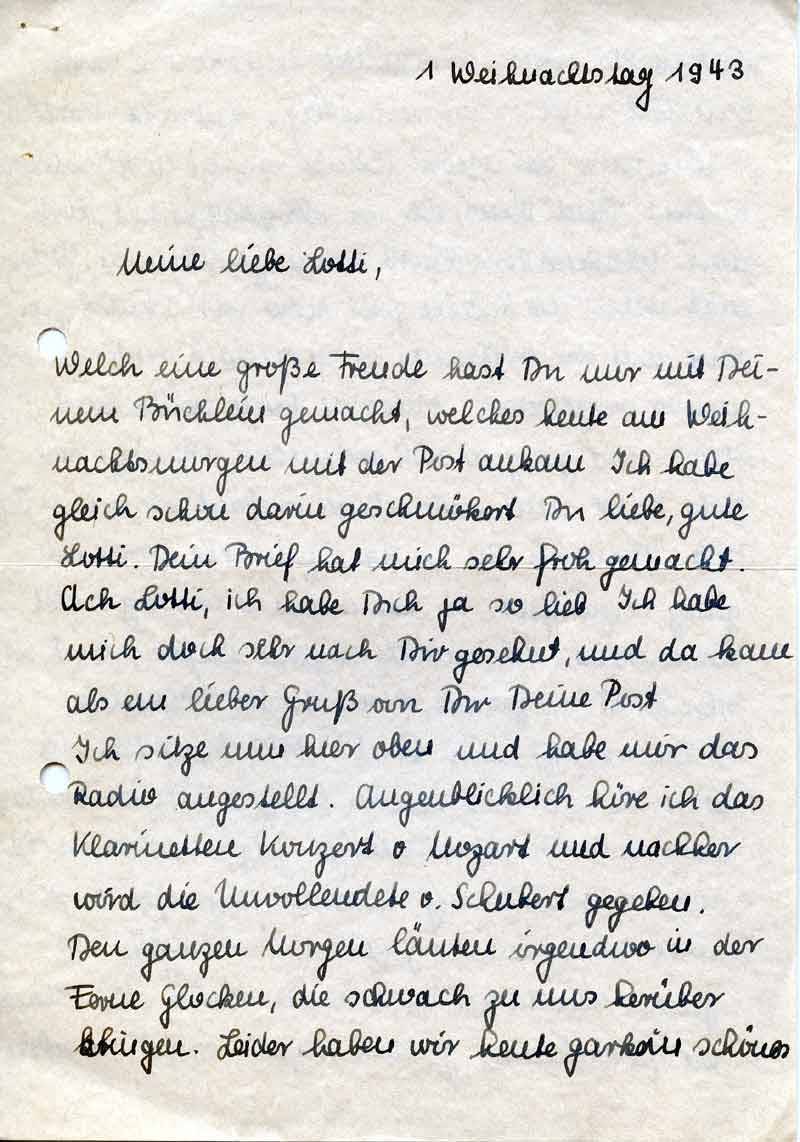 1 Weihnachtstag 1943
Meine liebe Lotti,
Welch eine große Freude hast Du mir mit Dei-
nem Büchlein gemacht, welches heute am Weih-
nachtsmorgen mit der Post ankam Ich habe
gleich schon darin geschmökert Du liebe, gute
Lotti. Dein Brief hat mich sehr froh gemacht.
Ach Lotti, ich habe Dich ja so lieb Ich habe
mich doch sehr nach Dir gesehnt, und da kam
als ein lieber Gruß von Dir Deine Post
Ich sitze nun hier oben und habe mir das
Radio angestellt. Augenblicklich höre ich das
Klarinetten Konzert v Mozart und nachher
wird die Unvollendete v. Schubert gegeben.
Den ganzen Morgen läuten irgendwo in der
Ferne Glocken, die schwach zu uns herüber
klingen. Leider haben wir heute garkein schönes